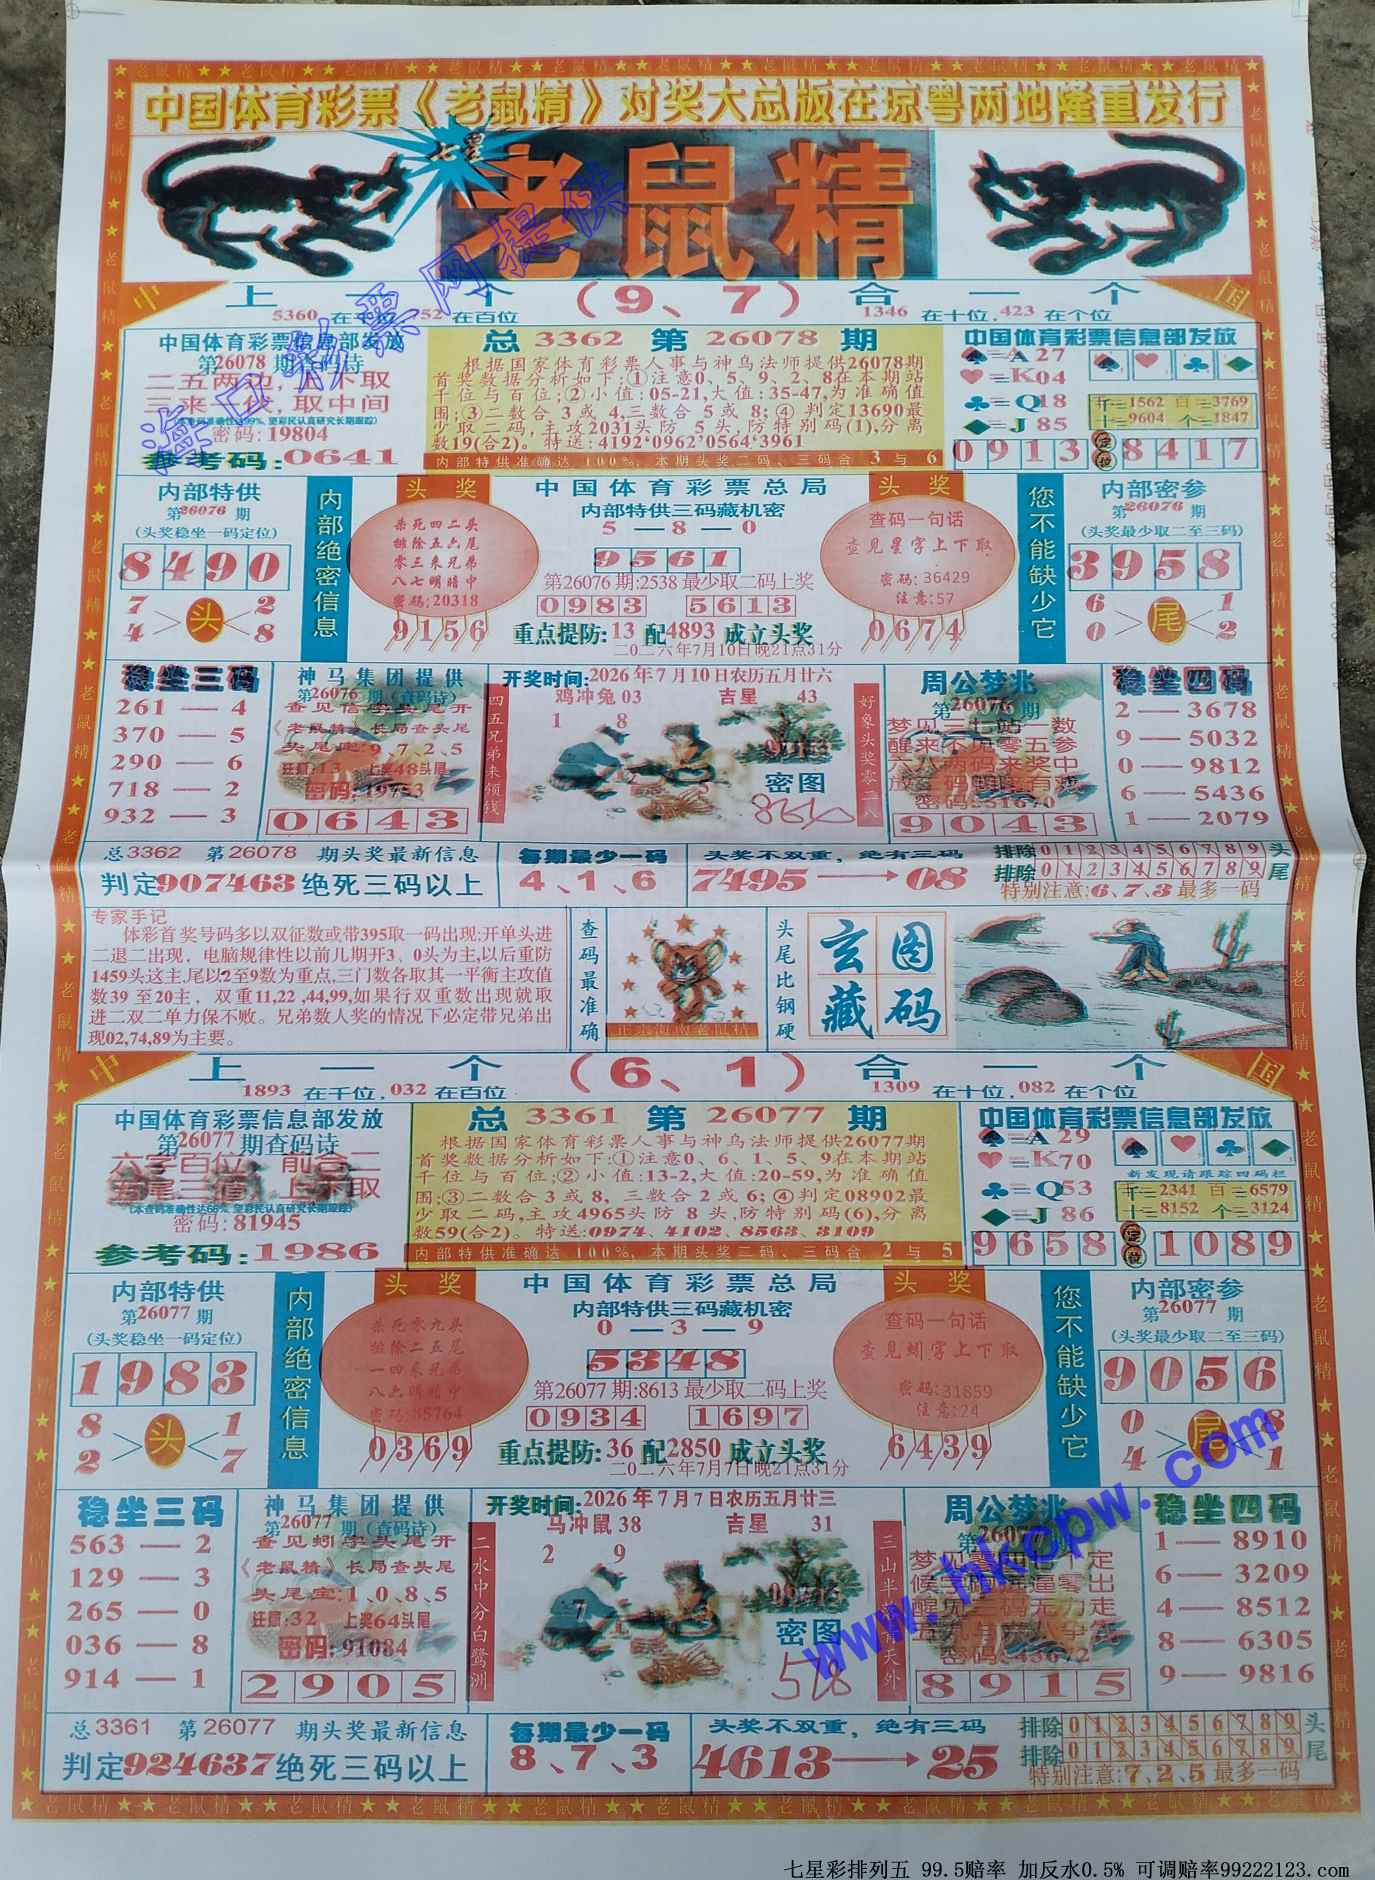 中国体育彩票《老鼠精》对奖大总版在琼粤两地隆重发行
七星
老鼠精
中 上一个 (9、7) 合一个 国
1346 在十位, 423 在个位
中国体育彩票信息部发放
第26078期查码诗
三来一伏, 取中间
密码: 19804
参考码: 0641
总 3362 第 26078 期
根据国家体育彩票人事与神鸟法师提供26078期
首奖数据分析如下:①注意0、5、9、2、8在本期站
千位与百位;②小值:05-21,大值:35-47,为准确值
围;③二数合 3 或 4,三数合 5 或 8;④ 判定13690最
少取二码,主攻2031头防 5 头,防特别码(1),分离
数19(合2)。特送:4192·0962·0564·3961
内部特供准确达 100%, 本期头奖二码、三码合 3 与 6
中国体育彩票信息部发放
♠=A 27
♥=K04
♣=Q18
♦=J 85
千=1562 百=3769
十=9604 个=1847
0913 定位 8417
内部特供
第26076期
(头奖稳坐一码定位)
8490
7 2
头
4 8
内部绝密信息
头奖
杀死四二头
排除五六尾
零三来兄弟
八七明暗中
密码:20318
9156
中国体育彩票总局
内部特供三码藏机密
5—8—0
9561
第26076期:2538最少取二码上奖
0983 5613
重点提防:13 配4893 成立头奖
二〇二六年7月10日晚21点31分
头奖
查码一句话
查见星字上下取
密码:36429
注意:57
0674
您不能缺少它
内部密参
第26076期
(头奖最少取二至三码)
3958
6 1
尾
0 2
稳坐三码
261—4
370—5
290—6
718—2
932—3
神马集团提供
第26076期(查码诗)
查见信字头尾开
《老鼠精》长局查头尾
头尾宝:9、7、2、5
狂追:13 上奖48头尾
密码:19753
0643
开奖时间:2026年7月10日农历五月廿六
鸡冲兔 03 吉星 43
1 8
四五兄弟来领钱
密图
好象头奖零三八
周公梦兆
第26076期
梦见三七站一数
醒来不见零五参
六八两码来奖中
密码:51670
9043
稳坐四码
2—3678
9—5032
0—9812
6—5436
1—2079
总3362 第26078 期头奖最新信息
判定907463绝死三码以上
每期最少一码
4、1、6
头奖不双重, 绝有三码
7495→08
排除0123456789头
排除0123456789尾
特别注意:6、7、3最多一码
专家手记
体彩首奖号码多以双征数或带395取一码出现;开单头进
二退二出现, 电脑规律性以前几期开3、0头为主,以后重防
1459头这主,尾以2至9数为重点,三门数各取其一平衡主攻值
数39 至20主, 双重11,22,44,99,如果行双重数出现就取
进二双二单力保不败。兄弟数人奖的情况下必定带兄弟出
现02,74,89为主要。
查码最准确
正宗海南老鼠精
头尾比钢硬
玄图藏码
中 上一个 (6、1) 合一个 国
1893 在千位, 032 在百位 1309 在十位, 082 在个位
中国体育彩票信息部发放
第26077期查码诗
密码: 81945
参考码: 1986
总 3361 第 26077 期
根据国家体育彩票人事与神鸟法师提供26077期
首奖数据分析如下:①注意0、6、1、5、9在本期站
千位与百位;②小值:13-2,大值:20-59,为准确值
围;③二数合 3 或 8, 三数合 2 或 6; ④判定08902最
少取二码,主攻4965头防 8 头,防特别码(6),分离
数59(合2)。 特送:0974、4102、8563、3109
内部特供准确达 100%, 本期头奖二码、三码合 2 与 5
中国体育彩票信息部发放
♠=A 29
♥=K70
♣=Q53
♦=J 86
新发现请跟踪四码栏
千=2341 百=6579
十=8152 个=3124
9658 定位 1089
内部特供
第26077期
(头奖稳坐一码定位)
1983
8 1
头
2 7
内部绝密信息
头奖
杀死零九头
排除二五尾
一四来兄弟
八六明暗中
0369
中国体育彩票总局
内部特供三码藏机密
0—3—9
5348
第26077期:8613最少取二码上奖
0934 1697
重点提防:36 配2850 成立头奖
二〇二六年7月7日晚21点31分
头奖
查码一句话
查见蚓字上下取
密码:31859
注意:24
6439
您不能缺少它
内部密参
第26077期
(头奖最少取二至三码)
9056
0 8
尾
4 1
稳坐三码
563—2
129—3
265—0
036—8
914—1
神马集团提供
第26077期(查码诗)
查见蚓字头尾开
《老鼠精》长局查头尾
头尾宝:1、0、8、5
狂追:32 上奖64头尾
密码:91084
2905
开奖时间:2026年7月7日农历五月廿三
马冲鼠 38 吉星 31
2 9
7
二水中分白鹭洲
密图
528
三山半落青天外
周公梦兆
密码:43672
8915
稳坐四码
1—8910
6—3209
4—8512
8—6305
9—9816
总3361 第26077 期头奖最新信息
判定924637绝死三码以上
每期最少一码
8、7、3
头奖不双重, 绝有三码
4613→25
排除0123456789头
排除0123456789尾
特别注意:7、2、5最多一码
海口彩票网提供
www.hkcpw.com
七星彩排列五 99.5赔率 加反水0.5% 可调赔率99222123.com